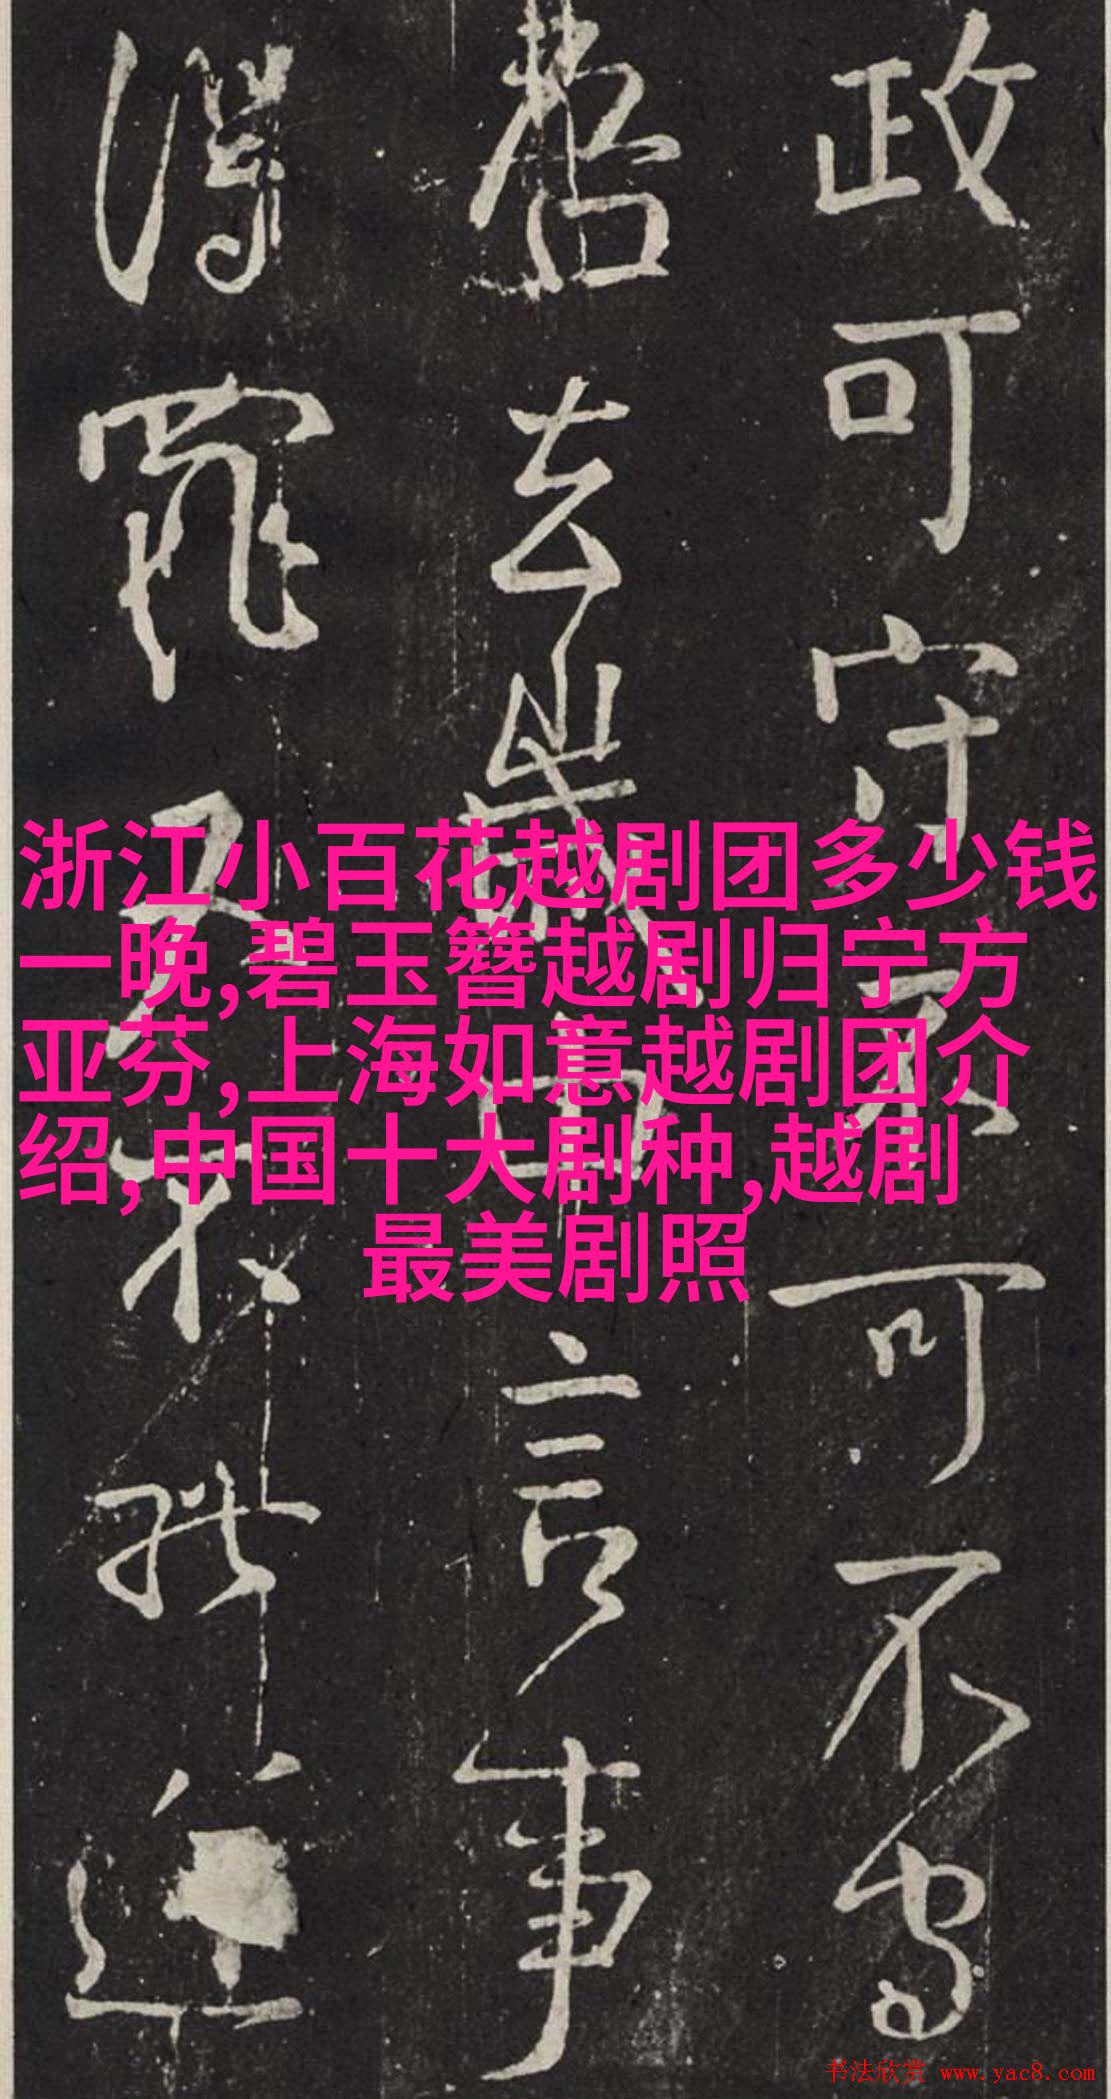 政可守不可不守
吾去歲中言事
得罪又不能逆
浙江小百花越剧团多少钱
一晚,碧玉簪越剧归宁方
亚芬,上海如意越剧团介
绍,中国十大剧种,越剧
最美剧照
书法欣赏 www.yac8.com